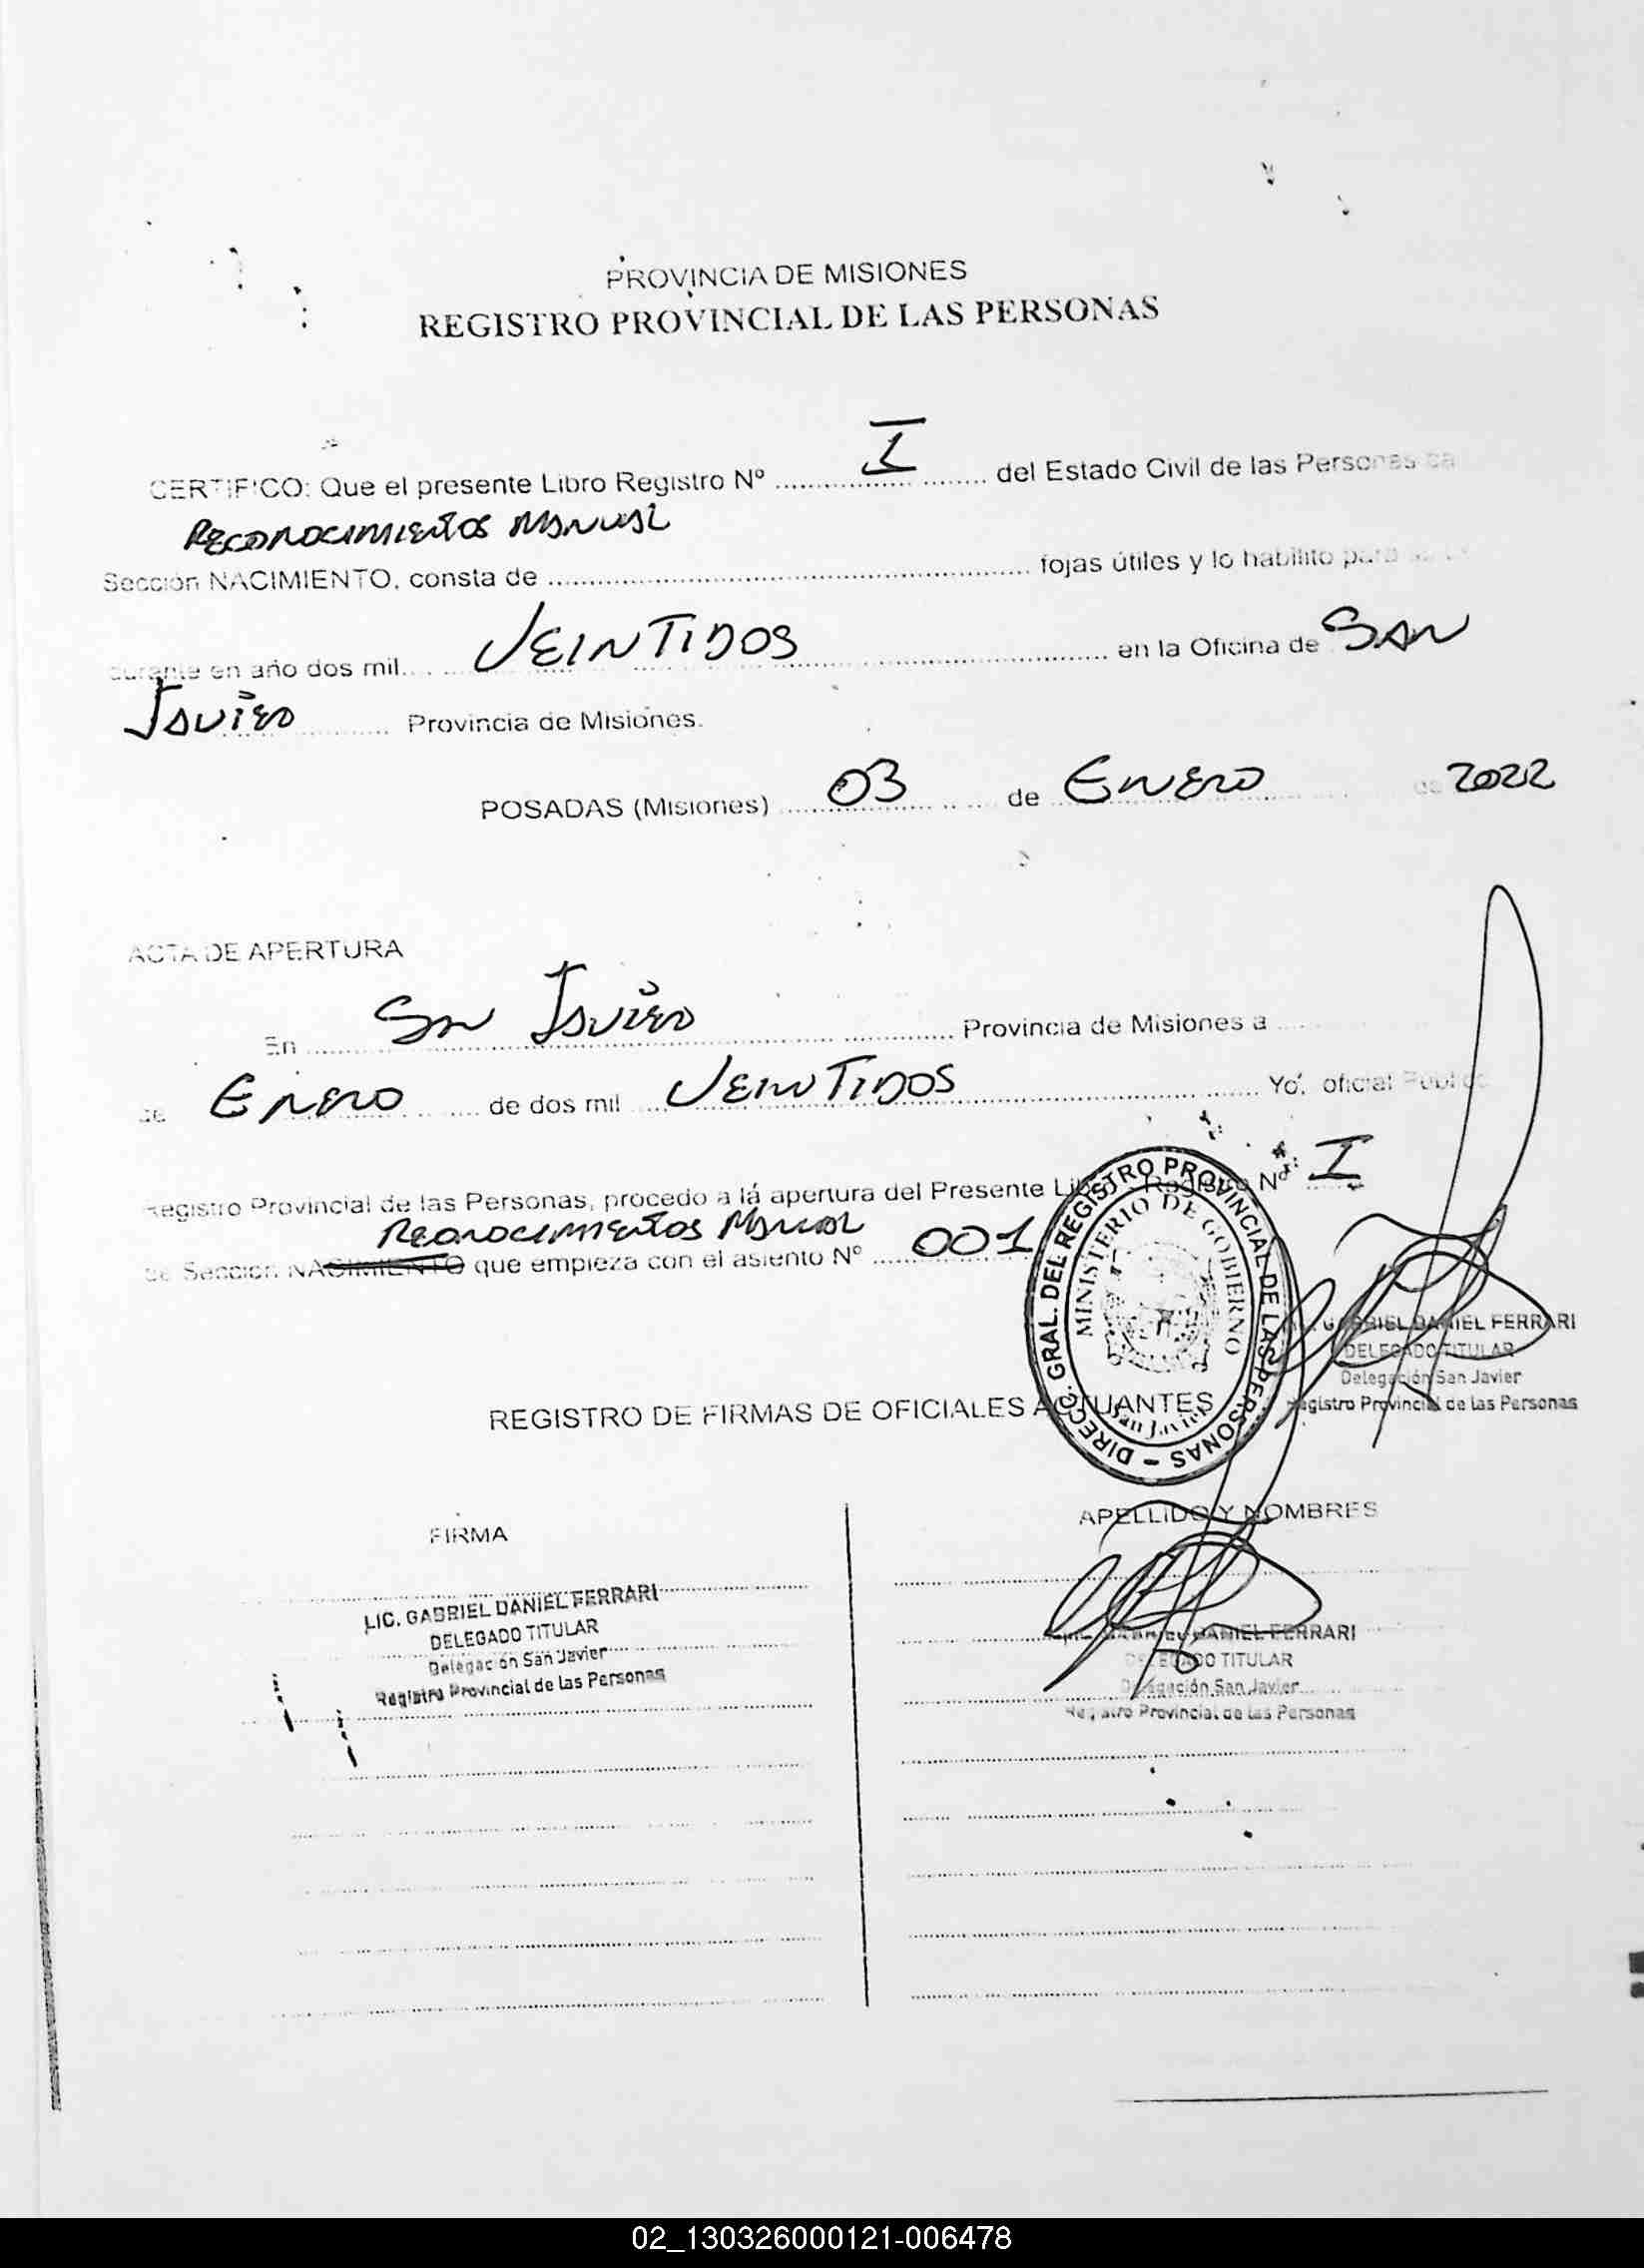 PROVINCIA DE MISIONES
REGISTRO PROVINCIAL DE LAS PERSONAS
CERTIFICO: Que el presente Libro Registro Nº I del Estado Civil de las Personas
RECONOCIMIENTOS MANUAL
Sección NACIMIENTO, consta de fojas útiles y lo habilito para
durante en año dos mil VEINTIDOS en la Oficina de SAN
JAVIER Provincia de Misiones.
POSADAS (Misiones) 03 de ENERO de 2022
ACTA DE APERTURA
En SAN JAVIER Provincia de Misiones a
de ENERO de dos mil VEINTIDOS Yo, oficial Publico
Registro Provincial de las Personas, procedo a la apertura del Presente Libro Registro Nº: I
RECONOCIMIENTOS MANUAL
de Sección NACIMIENTO que empieza con el asiento Nº 001
DIRECC. GRAL. DEL REGISTRO PROVINCIAL DE LAS PERSONAS -
MINISTERIO DE GOBIERNO
San Javier
GABRIEL DANIEL FERRARI
DELEGADO TITULAR
Delegación San Javier
Registro Provincial de las Personas
REGISTRO DE FIRMAS DE OFICIALES ACTUANTES
FIRMA
APELLIDO Y NOMBRES
LIC. GABRIEL DANIEL FERRARI
DELEGADO TITULAR
Delegación San Javier
Registro Provincial de las Personas
GABRIEL DANIEL FERRARI
DELEGADO TITULAR
Delegación San Javier
Registro Provincial de las Personas
02_130326000121-006478